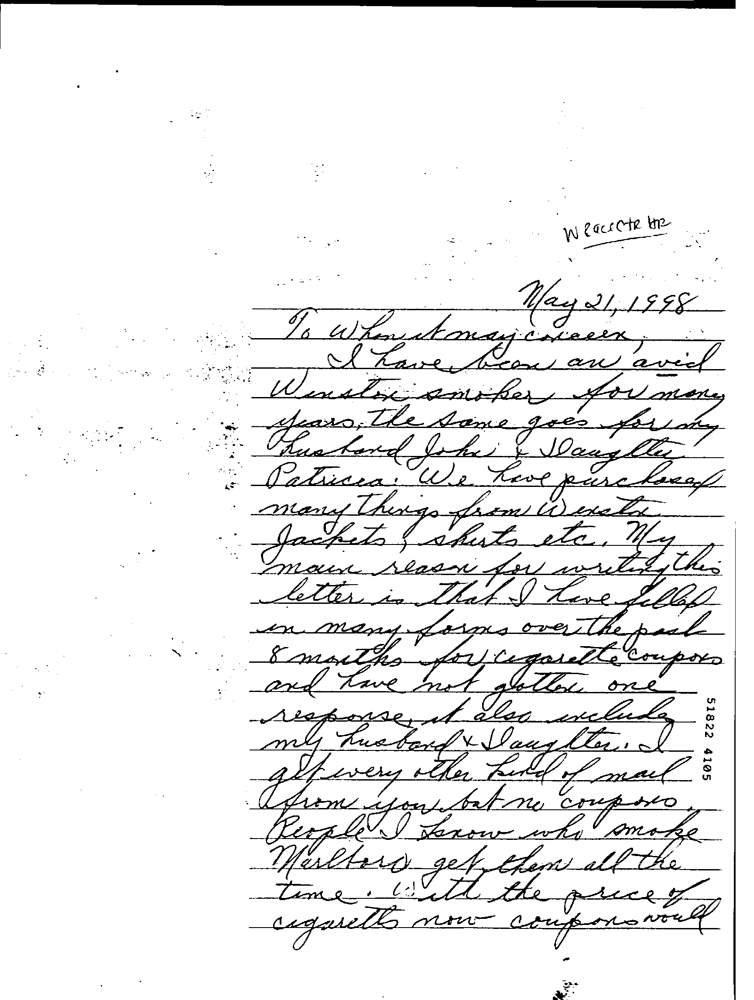 May 21, 1998
To Whom it may concern,
I have been an avid
Winston smoker for many
years, the same goes for my
husband John & Daughter
Patricia. We have purchased
many things from Winston
Jackets, shirts etc. My
main reason for writing this
letter is that I have filled
in many forms over the past
8 months for cigarette coupons
and have not gotten one
response, it also includes
my husband & Daughter. I
get every other kind of mail
from you but no coupons.
People I know who smoke
Marlboro get them all the
time. With the price of
cigaretts now coupons would
51822 4105